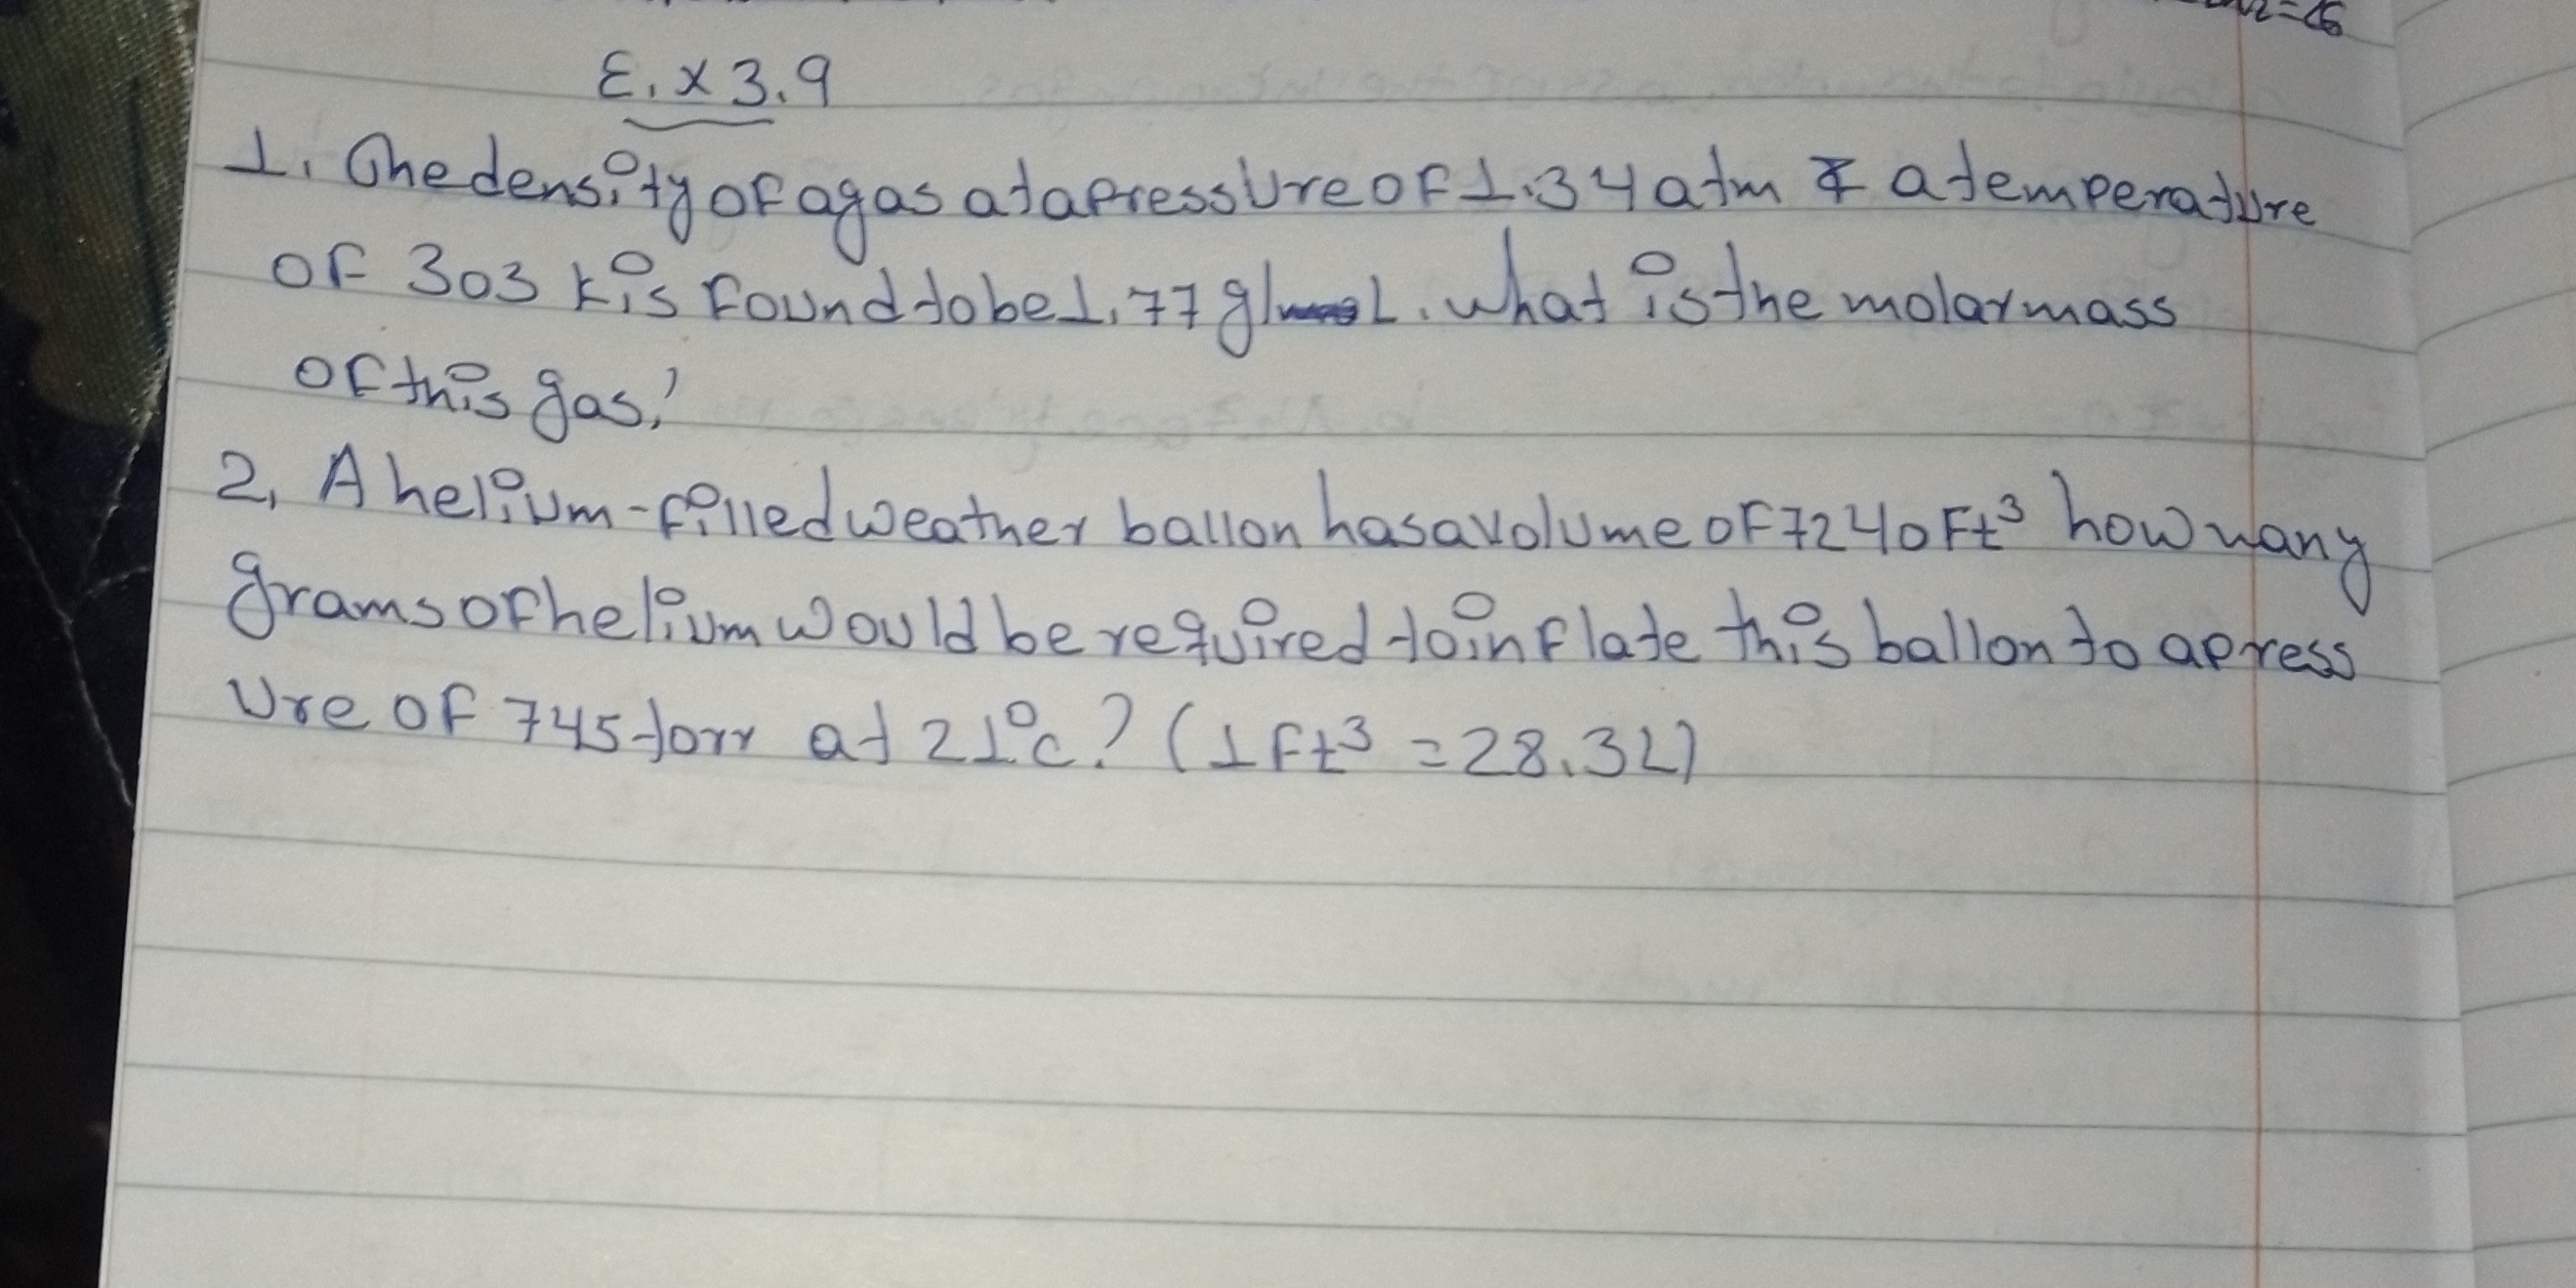 =26
E.x 3.9
1. The density of a gas at a pressure of 1.34 atm & a temperature
of 303 k is found to be 1.77 g/L. what is the molar mass
of this gas?
2. A helium-filled weather ballon has a volume of 7240 Ft³ how many
grams of helium would be required to inflate this ballon to a press
ure of 745 torr at 21°c? (1 Ft³ = 28.3L)